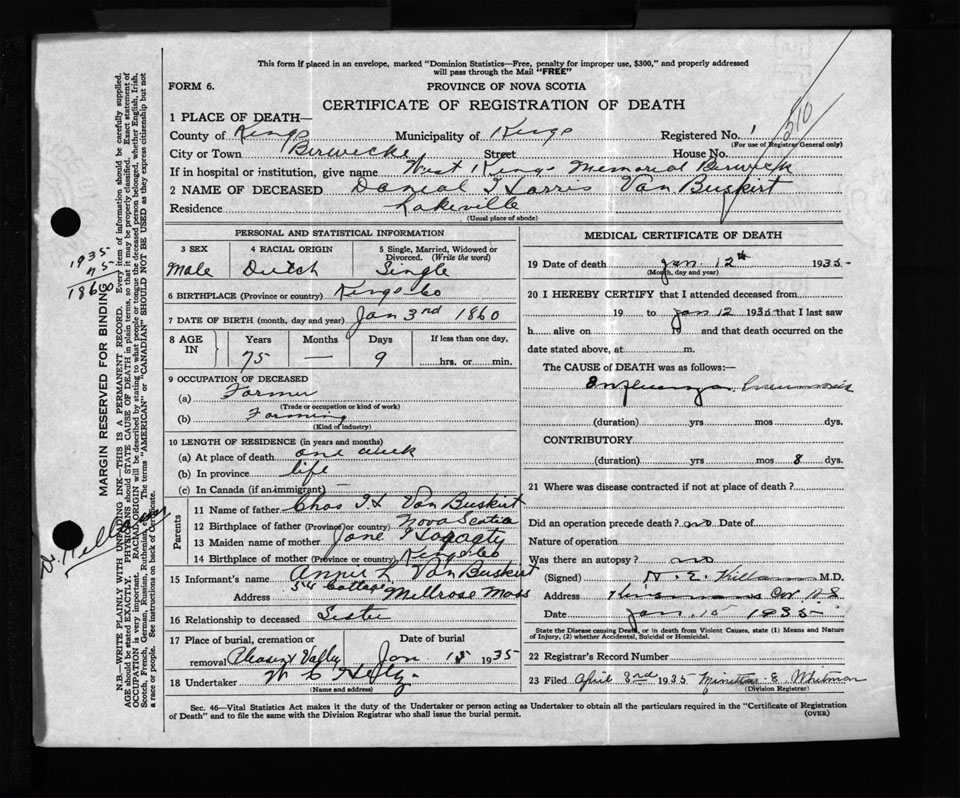 This form if placed in an envelope, marked "Dominion Statistics—Free, penalty for improper use, $300," and properly addressed
will pass through the Mail "FREE"
FORM 6.
PROVINCE OF NOVA SCOTIA
CERTIFICATE OF REGISTRATION OF DEATH
310
1 PLACE OF DEATH—
County of Kings Municipality of Kings Registered No. 1
(For use of Registrar General only)
City or Town Berwick Street House No.
If in hospital or institution, give name West Kings Memorial Berwick
2 NAME OF DECEASED Danial Harris Van Buskirt
Residence Lakeville
(Usual place of abode)
PERSONAL AND STATISTICAL INFORMATION
3 SEX 4 RACIAL ORIGIN 5 Single, Married, Widowed or
Divorced. (Write the word)
Male Dutch Single
6 BIRTHPLACE (Province or country) Kings Co
7 DATE OF BIRTH (month, day and year) Jan 3rd 1860
8 AGE IN Years Months Days If less than one day,
75 — 9 hrs. or min.
9 OCCUPATION OF DECEASED
(a) Farmer
(Trade or occupation or kind of work)
(b) Farming
(Kind of industry)
10 LENGTH OF RESIDENCE (in years and months)
(a) At place of death one week
(b) In province life
(c) In Canada (if an immigrant) —
Parents
11 Name of father Chas H Van Buskirt
12 Birthplace of father (Province or country) Nova Scotia
13 Maiden name of mother Jane
14 Birthplace of mother (Province or country) Kings Co
15 Informant's name Annie L Van Buskirt
Address 54 Cottage Millrose Mass
16 Relationship to deceased Sister
17 Place of burial, cremation or Date of burial
removal Pleasant Valley Jan 15 1935
18 Undertaker W C
(Name and address)
MEDICAL CERTIFICATE OF DEATH
19 Date of death Jan. 12th 1935-
(Month, day and year)
20 I HEREBY CERTIFY that I attended deceased from
19 to Jan 12 1935 that I last saw
h alive on 19 and that death occurred on
date stated above, at m.
The CAUSE OF DEATH was as follows:—
Influenza Pneumonia
(duration) yrs mos dys.
CONTRIBUTORY
(duration) yrs mos 8 dys.
21 Where was disease contracted if not at place of death?
Did an operation precede death? no Date of
Nature of operation
Was there an autopsy? no
(Signed) H. E. Killam M.D.
Address Cor N.S
Date Jan 15 1935
State the Disease causing Death, or in death from Violent Causes, state (1) Means and Nature
of Injury, (2) whether Accidental, Suicidal or Homicidal.
22 Registrar's Record Number
23 Filed April 3rd 1935 E. Whitman
(Division Registrar)
Sec. 46—Vital Statistics Act makes it the duty of the Undertaker or person acting as Undertaker to obtain all the particulars required in the "Certificate of Registration
of Death" and to file the same with the Division Registrar who shall issue the burial permit.
(OVER)
1935
75
1860
Dr. Killam
MARGIN RESERVED FOR BINDING
N.B.—WRITE PLAINLY WITH UNFADING INK—THIS IS A PERMANENT RECORD. Every item of information should be carefully supplied.
AGE should be stated EXACTLY. PHYSICIANS should STATE CAUSE OF DEATH in plain terms, so that it may be properly classified. Exact statement of
OCCUPATION is very important. RACIAL ORIGIN will be described by stating to what people or tongue the deceased person belonged, whether English, Irish,
Scotch, French, German, Russian, Ruthenian, etc. The terms "AMERICAN" or "CANADIAN" SHOULD NOT BE USED as they express citizenship but not
a race or people. See instructions on back of Certificate.